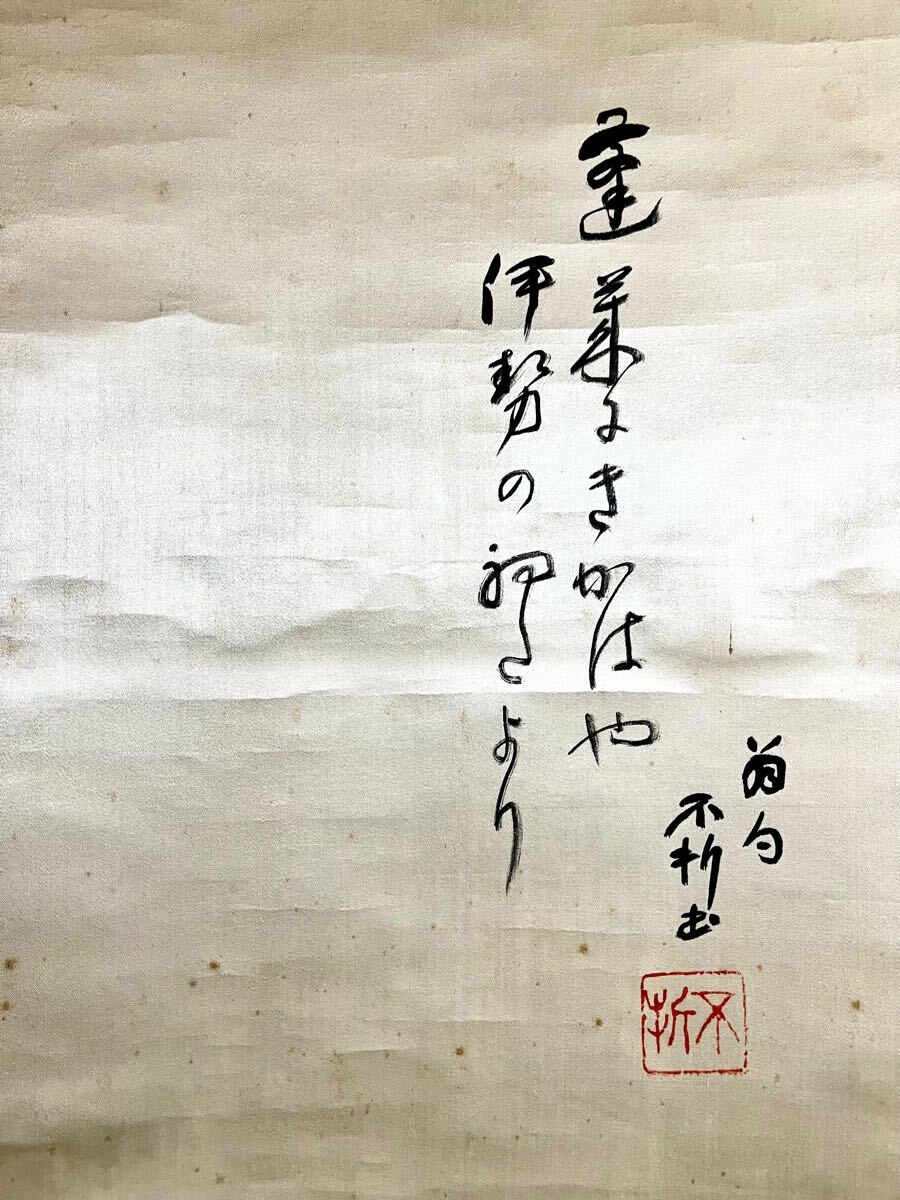 翁句
不折書
蓬莱にきかはや
伊勢の初たより
不折